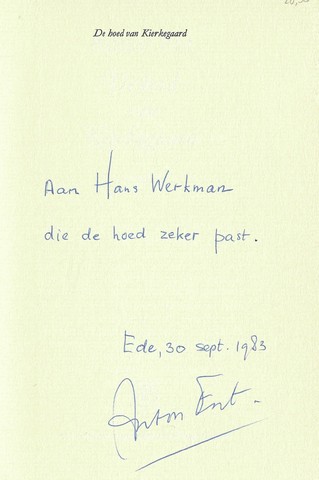 De hoed van Kierkegaard
Aan Hans Werkman
die de hoed zeker past.
Ede, 30 sept. 1983
Anton Ent.